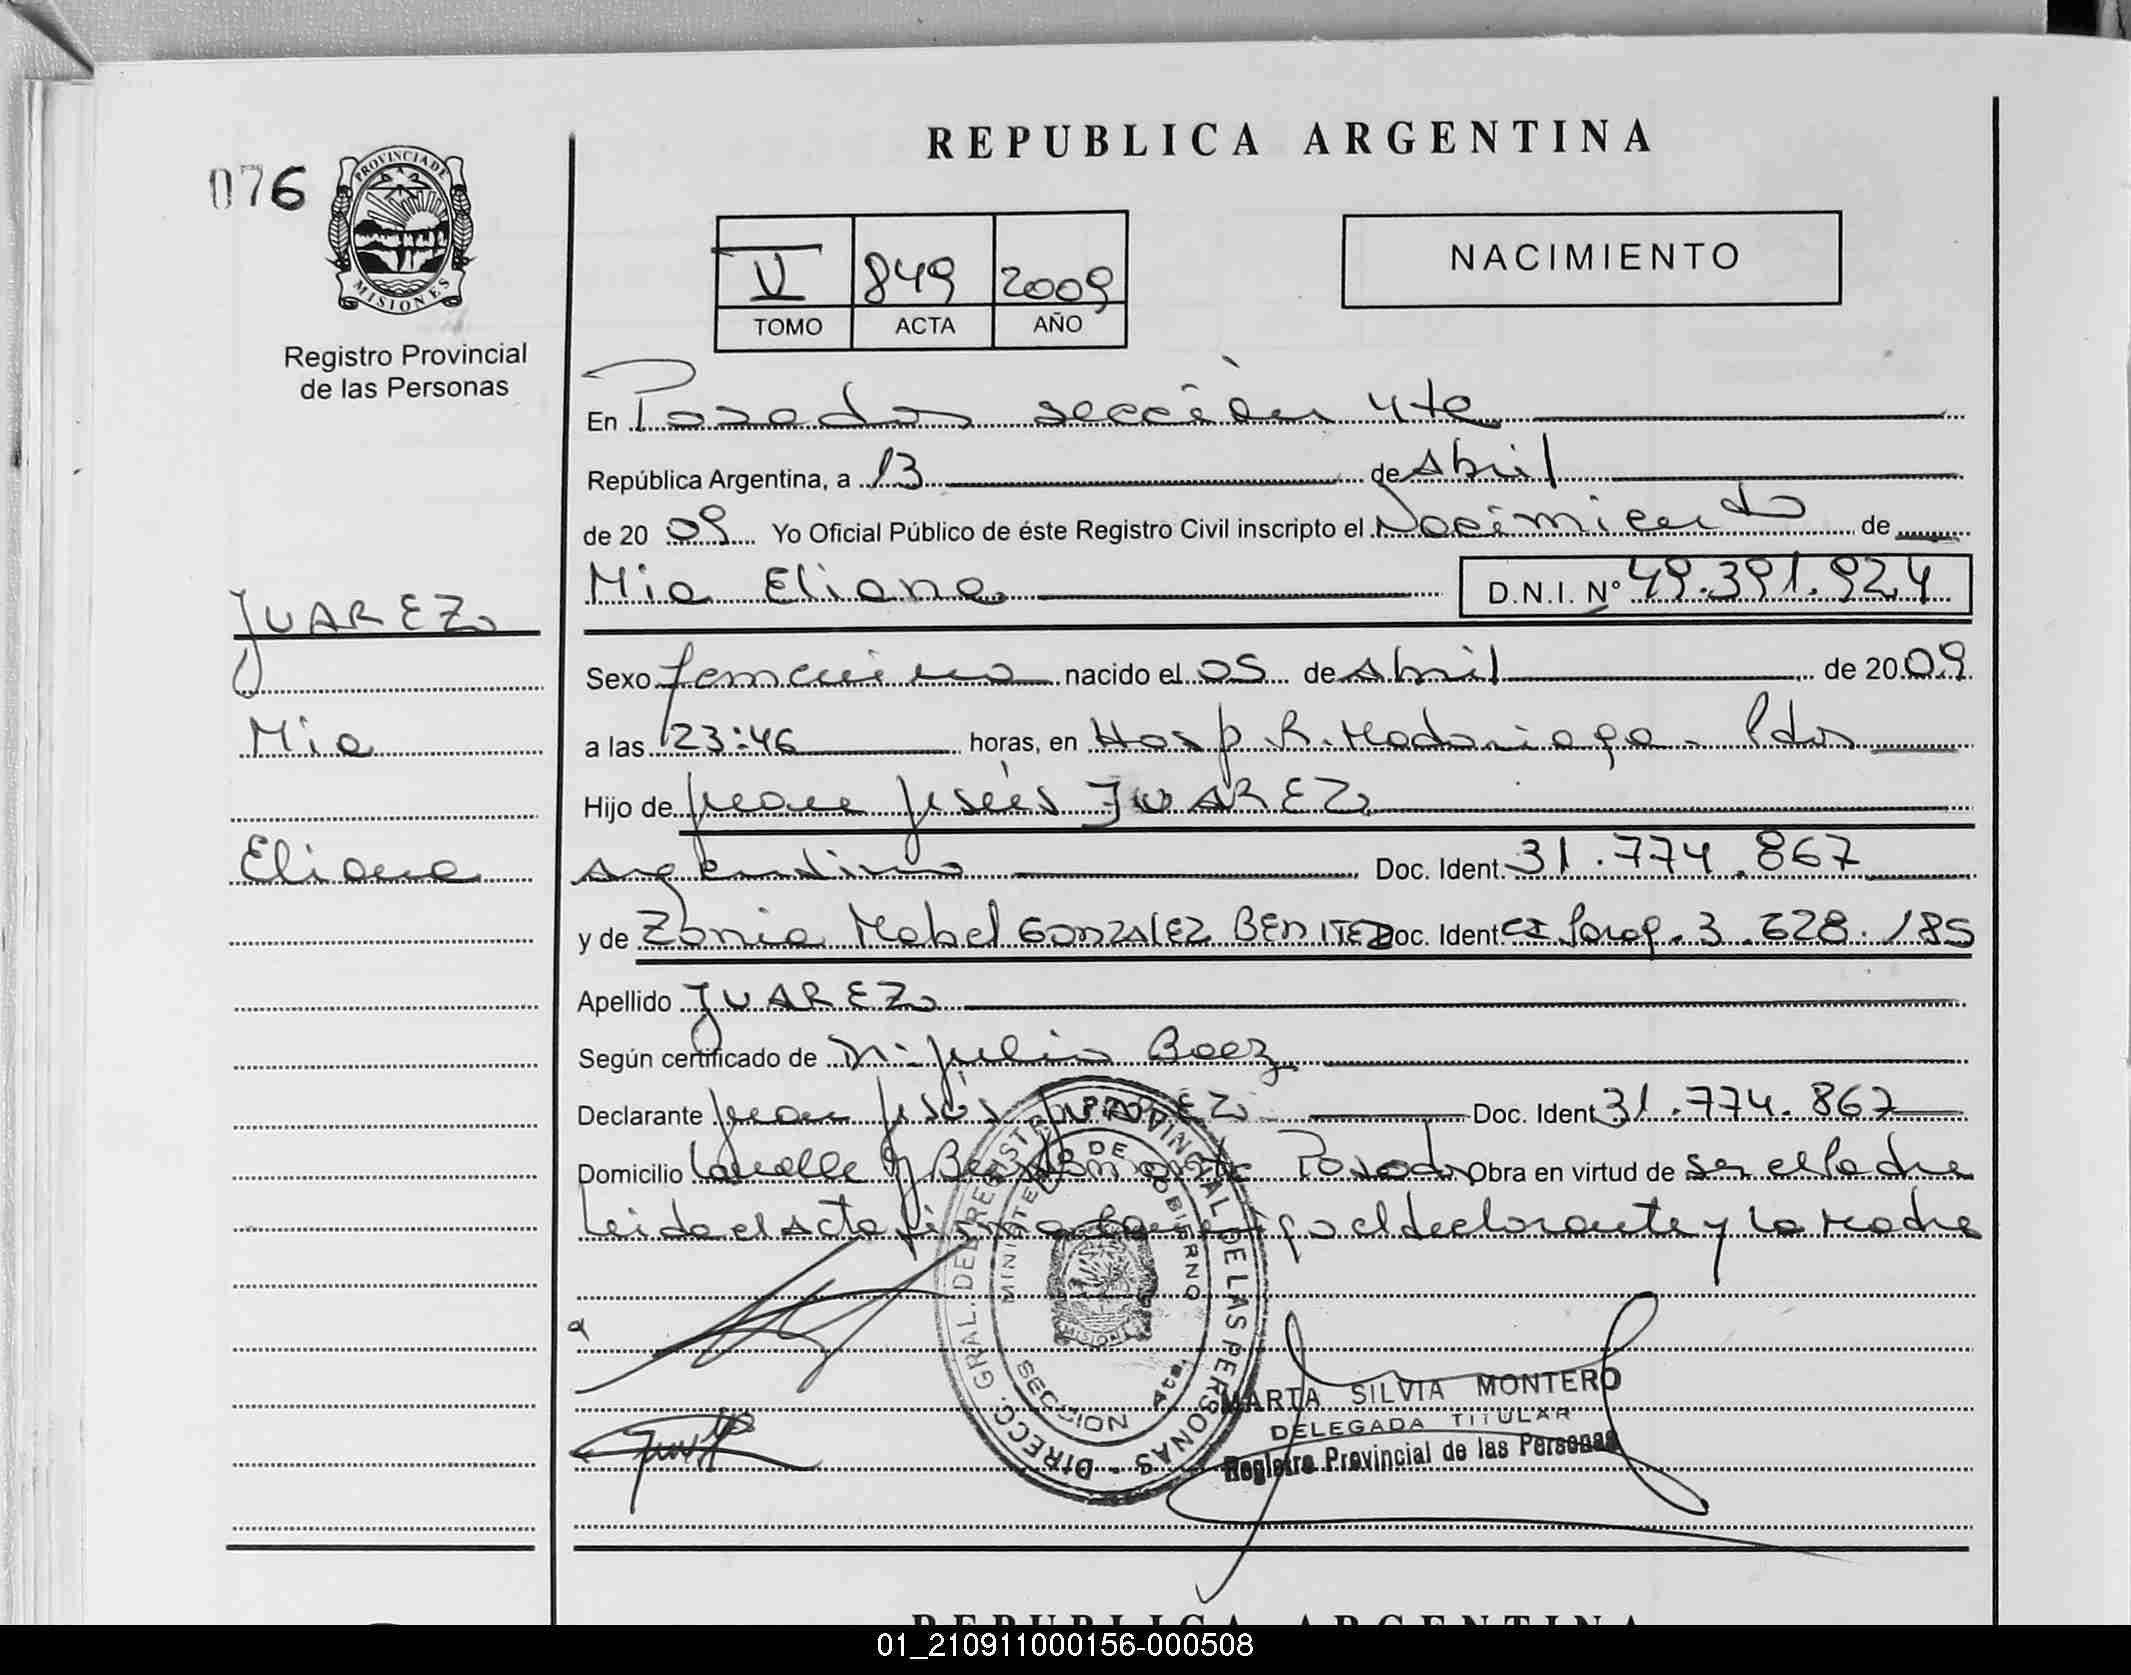 REPUBLICA ARGENTINA
076
PROVINCIA DE
MISIONES
Registro Provincial
de las Personas
NACIMIENTO
V 849 2009
TOMO ACTA AÑO
En Posadas sección 4ta
República Argentina, a 13 de Abril
de 2009 Yo Oficial Público de éste Registro Civil inscripto el Nacimiento de
Mia Eliana D.N.I. Nº 49.391.924
JUAREZ
Mia
Eliana
Sexo femenino nacido el 05 de Abril de 2009
a las 23:46 horas, en Hosp. R. Madariaga - Pdas
Hijo de Juan Jesús JUAREZ
Argentino Doc. Ident. 31.774.867
y de Zonia Mabel GONZALEZ BENITEZ Doc. Ident. CI Parag. 3.628.185
Apellido JUAREZ
Según certificado de Dr. Julio Baez
Declarante Juan Jesús JUAREZ Doc. Ident 31.774.867
Domicilio Lavalle y Posadas Obra en virtud de ser el Padre
Leida el Acta firma conmigo el declarante y la Madre
DIRECC. GRAL. DEL REGISTRO PROVINCIAL DE LAS PERSONAS
MINISTERIO DE GOBIERNO
MISIONES
SECCION 4ta.
MARTA SILVIA MONTERO
DELEGADA TITULAR
Registro Provincial de las Personas
REPUBLICA ARGENTINA
01_210911000156-000508